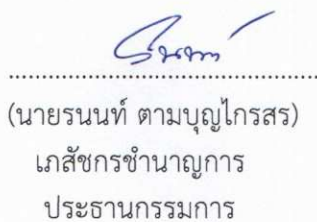 (นายรนนท์ ตามบุญไกรสร)
เภสัชกรชำนาญการ
ประธานกรรมการ